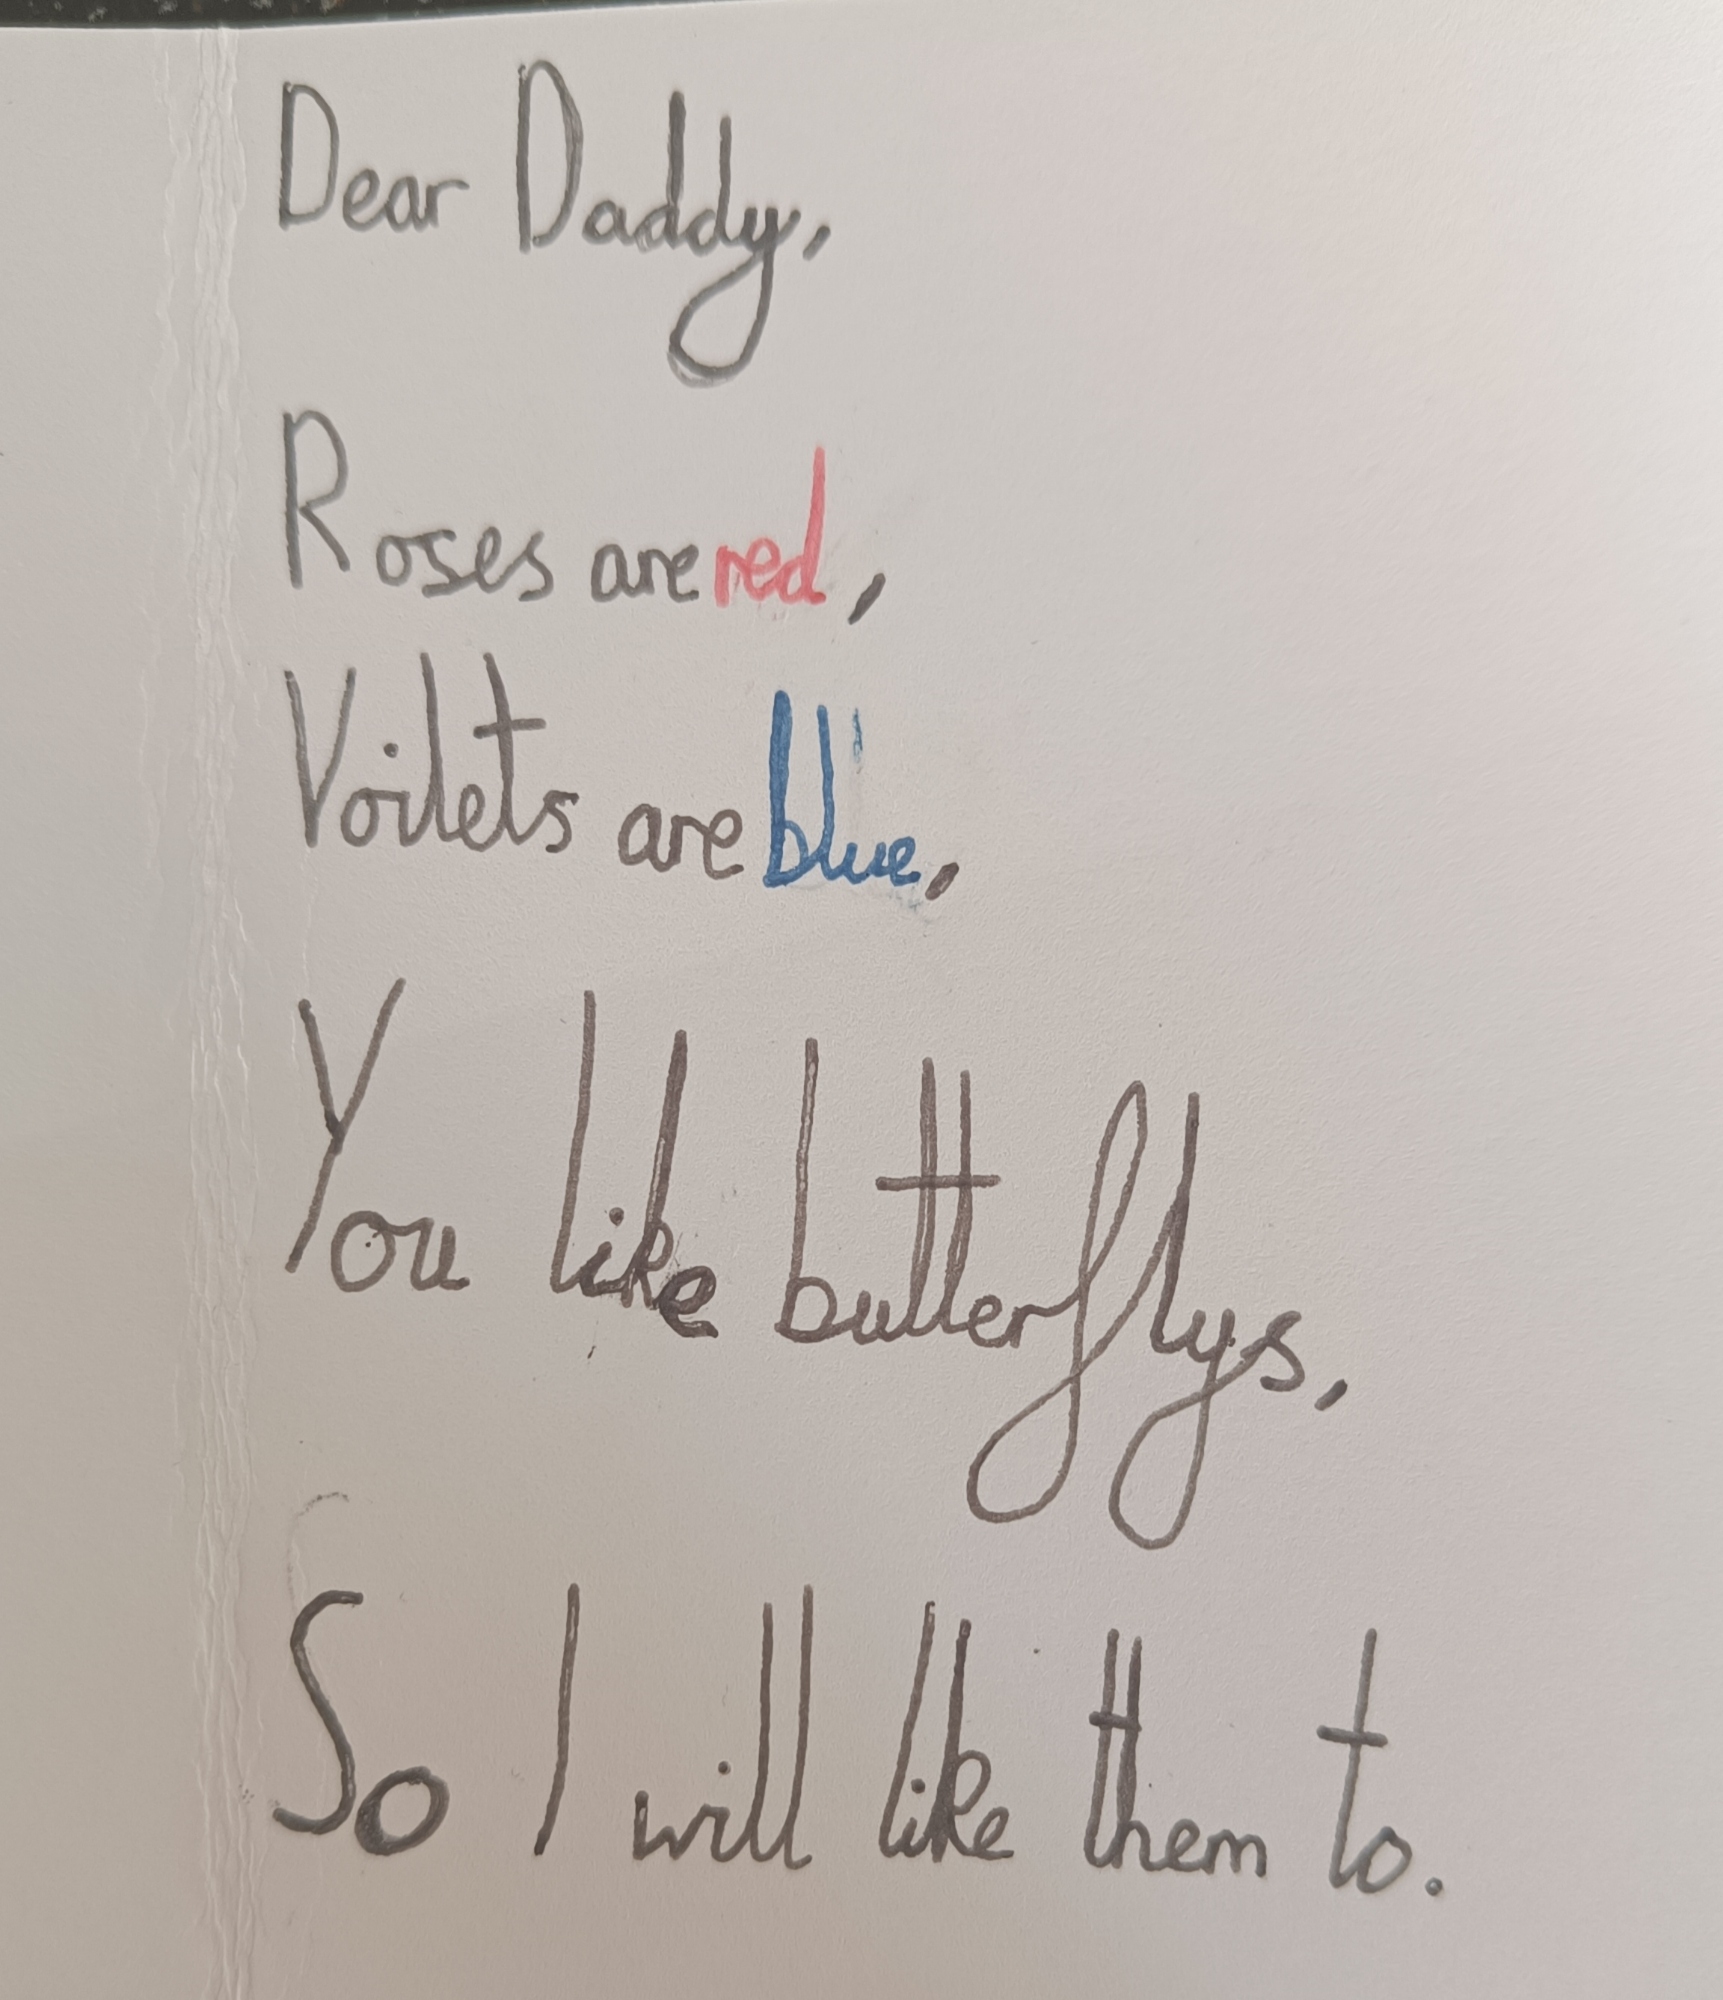 Dear Daddy,
Roses are red,
Voilets are blue,
You like butterflys,
So I will like them to.